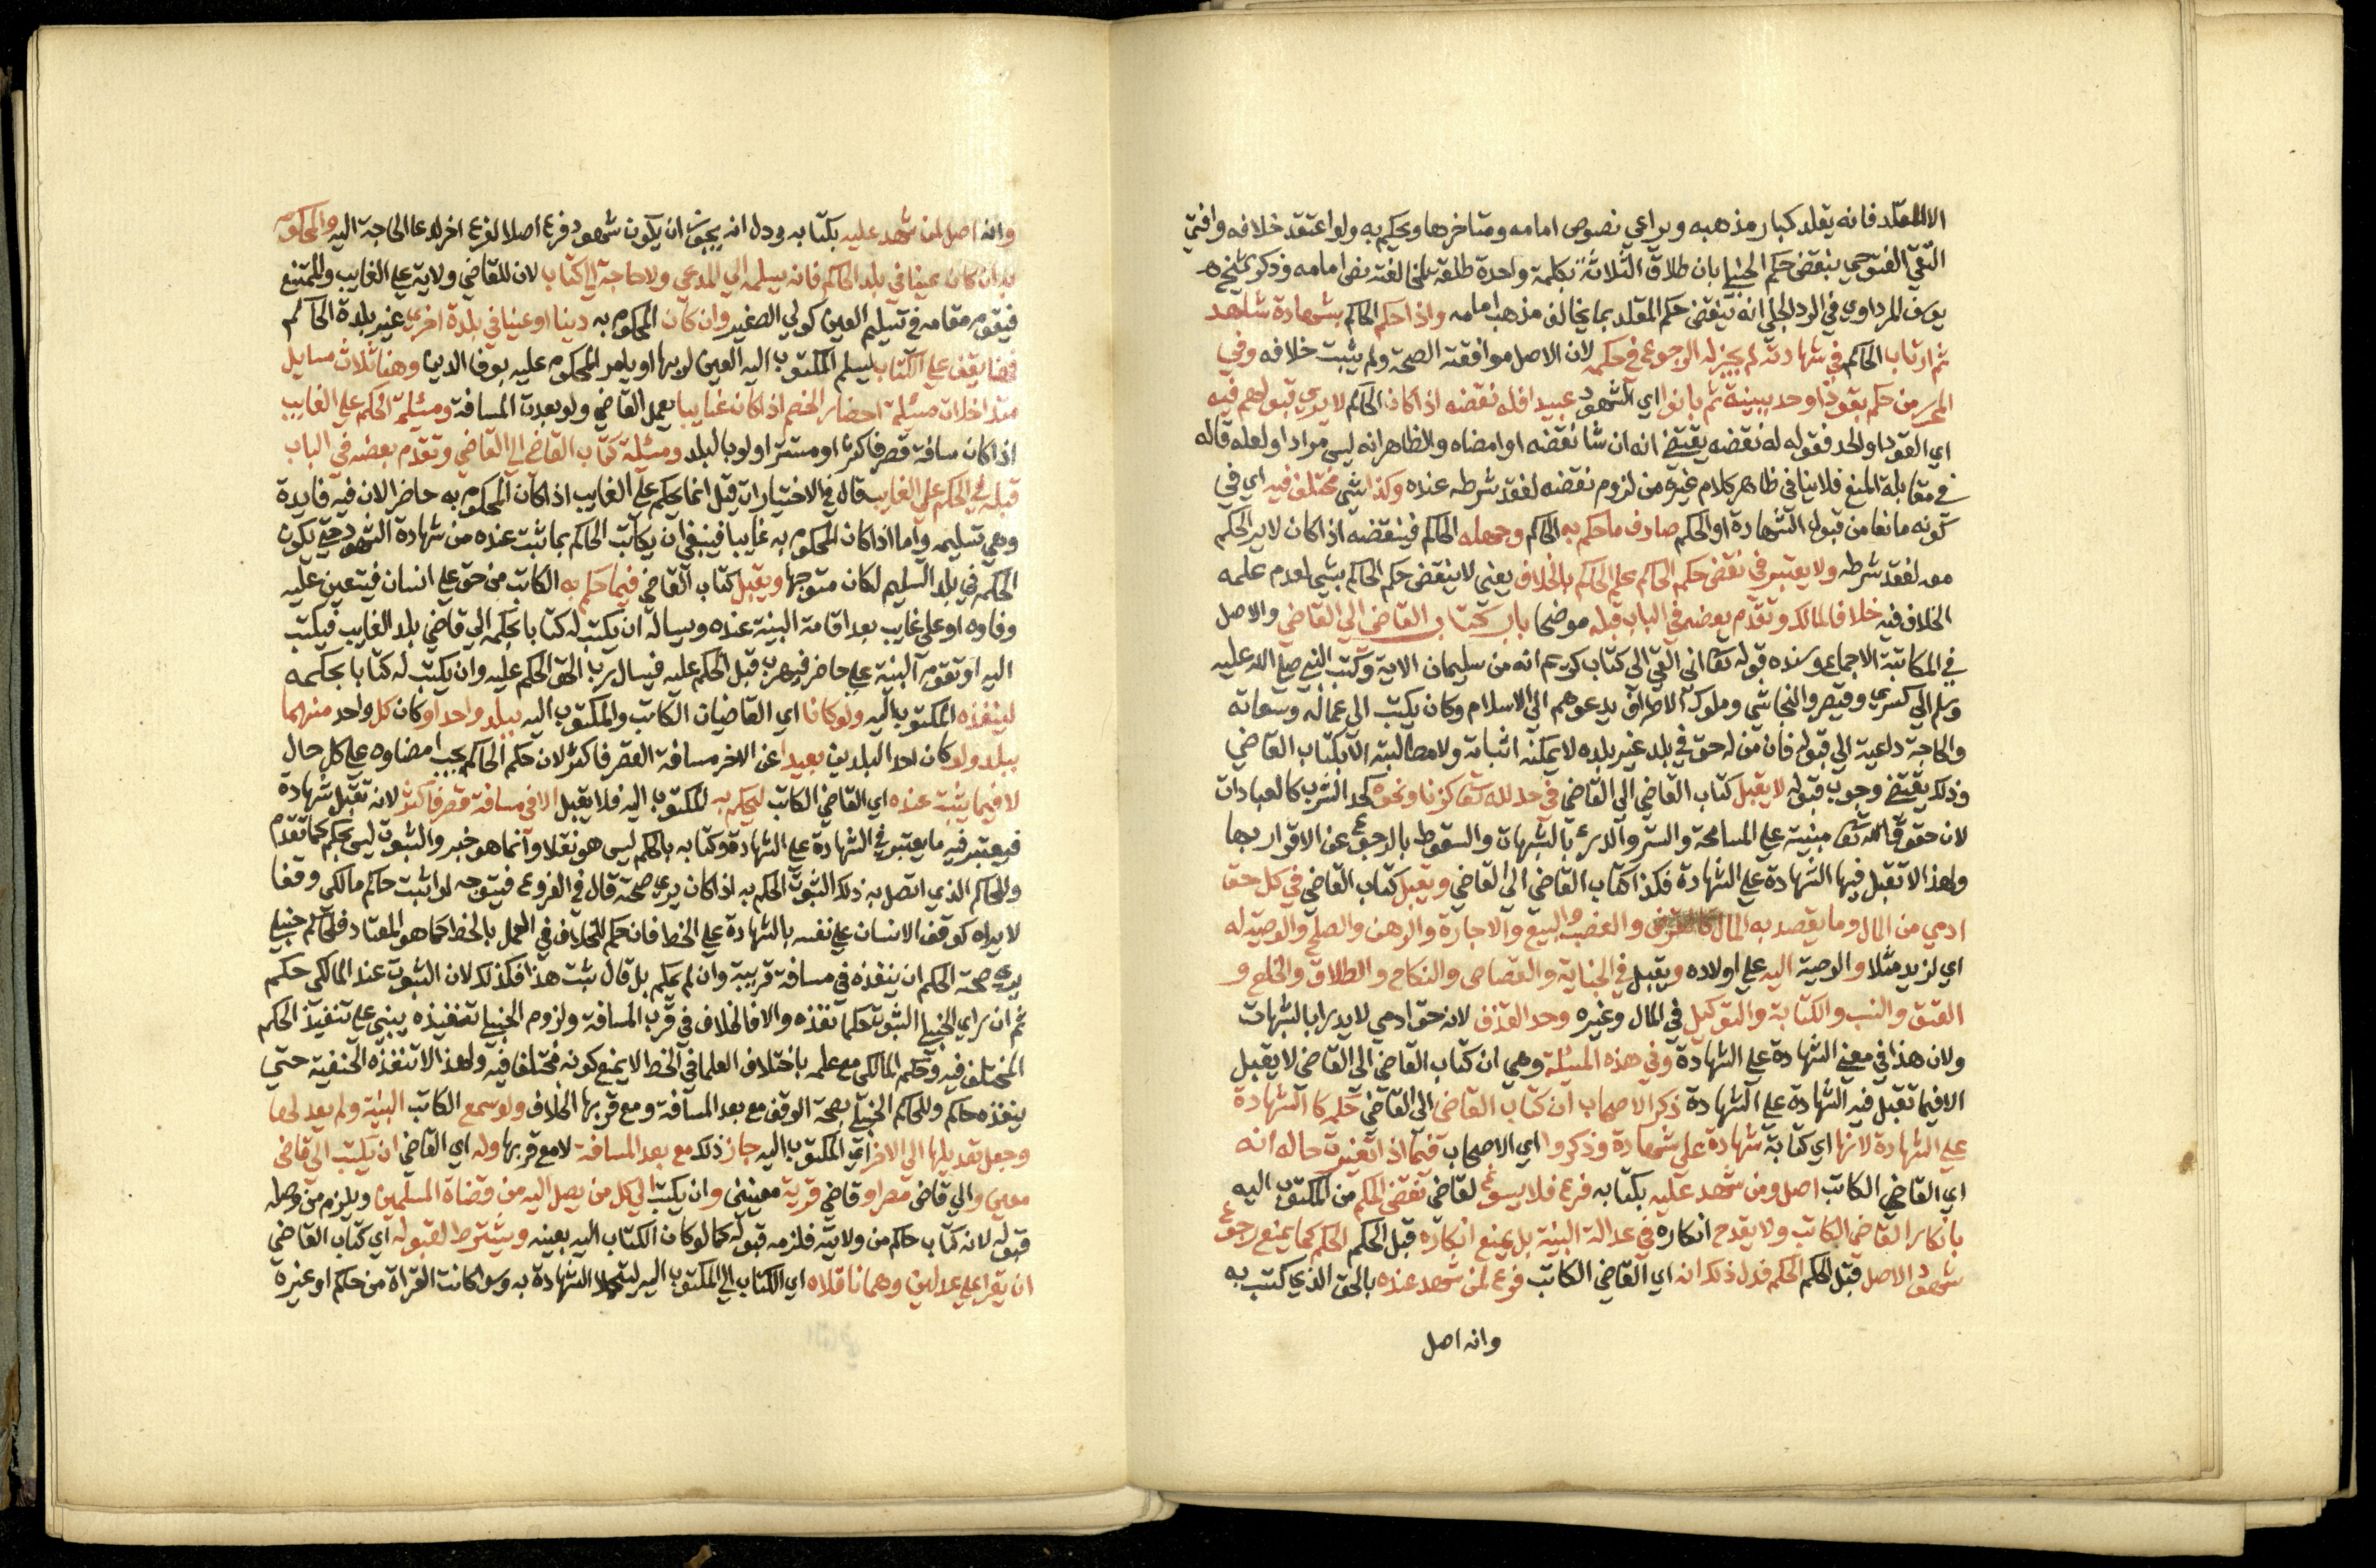 الا المقلد فانه يقلد كبار مذهبه ويراعي نصوص امامه ومتاخرها ويحكم به ولو اعتقد خلافه وافتي
التقي الفتوحي بنقض حكم الحنبلي بان طلاق الثلاث بكلمة واحدة طلقة لمخالفته نص امامه وذكر شيخه
يوسف المرداوي في الرد الجلي انه ينقض حكم المقلد بما يخالف مذهب امامه واذا حكم الحاكم بشهادة شاهد
ثم ارتاب الحاكم في شهادته لم يجز له الرجوع في حكمه لان الاصل موافقته الصحة ولم يثبت خلافه وفي
المحرر من حكم بقود او حد ببينة ثم بانوا اي الشهود عبيدا فله نقضه اذا كان الحاكم لا يري قبولهم فيه
اي القود او الحد فقوله له نقضه يقتضي انه ان شا نقضه او امضاه والظاهر انه ليس مرادا ولعله قاله
في مقابلة المنع فلا ينافي ظاهر كلام غيره من لزوم نقضه لفقد شرطه عنده وكذا شي مختلف فيه اي في
كونه مانعا من قبول الشهادة او الحكم صادف ما حكم به الحاكم وجهله الحاكم فينقضه اذا كان لا ير الحكم
معه لفقد شرطه ولا يعتبر في نقض حكم الحاكم علم الحاكم بالخلاف يعني لا ينقض حكم الحاكم بشي لعدم علمه
الخلاف فيه خلافا لمالك وتقدم بعضه في الباب قبله موضحا باب كتاب القاضي الي القاضي والاصل
في المكاتبة الاجماع وسنده قوله تعا اني القي الي كتاب كريم انه من سليمان الاية وكتب النبي صلي الله عليه
وسلم الي كسري وقيصر والنجاشي وملوك الاطراف يدعوهم الي الاسلام وكان يكتب الي عماله وسعاته
والحاجة داعية الي قبوله فان من له حق في بلد غير بلده لا يمكنه اثباته ولا مطالبته الا بكتاب القاضي
وذلك يقتضي وجوب قبوله لا يقبل كتاب القاضي الي القاضي في حد لله تعا كزنا ونحوه كحد الشرب كالعبادات
لان حقوق الله تعا مبنية علي المسامحة والستر والدرئ بالشبهات والسقوط بالرجوع عن الاقرار بها
ولهذا لا تقبل فيها الشهادة علي الشهادة فكذا كتاب القاضي الي القاضي ويقبل كتاب القاضي في كل حق
ادمي من المال وما يقصد به المال كالقرض والغصب والبيع والاجارة والرهن والصلح والوصية له
اي لزيد مثلا والوصية اليه علي اولاده ويقبل في الجناية والقصاص والنكاح والطلاق والخلع و
العتق والنسب والكتابة والتوكيل في المال وغيره وحد القذف لانه حق ادمي لا يدرا بالشبهات
ولان هذا في معني الشهادة علي الشهادة وفي هذه المسئلة وهي ان كتاب القاضي الي القاضي لا يقبل
الا فيما تقبل فيه الشهادة علي الشهادة ذكر الاصحاب ان كتاب القاضي الي القاضي حكمه كالشهادة
علي الشهادة لانها اي كتابة شهادة علي شهادة وذكروا اي الاصحاب فيما اذا تغيرت حاله انه
اي القاضي الكاتب اصل ومن شهد عليه بكتابه فرع فلا يسوغ لقاضي نقض الحكم من المكتوب اليه
بانكار القاضي الكاتب ولا يقدح انكاره في عدالة البينة بل يمنع انكاره قبل الحكم الحكم كما يمنع رجوع
شهود الاصل قبل الحكم الحكم فدل ذلك انه اي القاضي الكاتب فرع لمن شهد عنده بالحق الذي كتب به
وانه اصل
وانه اصل لمن شهد عليه بكتابه ودل انه يجوز ان يكون شهود فرع اصلا لفرع اخر لدعا الحاجة اليه والمحكوم
به ان كان عينا في بلد الحاكم فانه يسلمه الي المدعي ولا حاجة الي كتاب لان للقاضي ولاية علي الغايب والممتنع
فيقوم مقامه في تسليم العين كولي الصغير وان كان المحكوم به دينا او عينا في بلدة اخري غير بلدة الحاكم
فهنا يقف علي الكتاب ليسلم المكتوب اليه العين لربها او يامر المحكوم عليه بوفا الدين وهنا ثلاث مسايل
متداخلات مسئلة احضار الخصم اذا كان غايبا بعمل القاضي ولو بعدت المسافة ومسئلة الحكم علي الغايب
اذا كان مسافة قصر فاكثر او مستتر او لو بالبلد ومسئلة كتاب القاضي الي القاضي وتقدم بعضه في الباب
قبله في الحكم علي الغايب قال في الاختيارات قيل انما يحكم علي الغايب اذا كان المحكوم به حاضرا لان فيه فايدة
وهي تسليمه واما اذا كان المحكوم به غايبا فينبغي ان يكاتب الحاكم بما ثبت عنده من شهادة الشهود حتي يكون
الحكم في بلد التسليم لكان متوجها ويقبل كتاب القاضي فيما حكم به الكاتب من حق علي انسان فيتعين عليه
وفاوه او علي غايب بعد اقامة البينة عنده ويساله ان يكتب له كتابا بحكمه الي قاضي بلد الغايب فيكتب
اليه او تقوم البينة علي حاضر فيهرب قبل الحكم عليه فيسال رب الحق الحكم عليه وان يكتب له كتابا بحكمه
لينفذه المكتوب اليه ولو كانا اي القاضيان الكاتب والمكتوب اليه ببلد واحد او كان كل واحد منهما
ببلد ولو كان احد البلدين بعيدا عن الاخر مسافة القصر فاكثر لان حكم الحاكم يجب امضاوه علي كل حال
لا فيما يثبت عنده اي القاضي الكاتب ليحكم به المكتوب اليه فلا يقبل الا في مسافة قصر فاكثر لانه تقبل شهادة
فيعتبر فيه ما يعتبر في الشهادة علي الشهادة وكتابه بالحكم ليس هو نقلا وانما هو خبر والثبوت ليس بحكم كما تقدم
والحاكم الذي اتصل به ذلك الثبوت الحكم به اذا كان يري صحته قال في الفروع فيتوجه لو اثبت حاكم مالكي وقفا
لا يراه كوقف الانسان علي نفسه بالشهادة علي الخط فان حكم للخلاف في العمل بالخط كما هو المعتاد فلحاكم حنبلي
يري صحة الحكم ان ينفذه في مسافة قريبة وان لم يحكم بل قال ثبت هذا فكذلك لان الثبوت عند المالكي حكم
ثم ان راي الحنبلي الثبوت حكما نفذه والا فالخلاف في قرب المسافة ولزوم الحنبلي تنفيذه ينبني علي تنفيذ الحكم
المختلف فيه وحكم المالكي مع علمه باختلاف العلما في الخط لا يمنع كونه مختلفا فيه ولهذا لا تنفذه الحنفية حتي
ينفذه حاكم وللحاكم الحنبلي بصحة الوقف مع بعد المسافة ومع قربها الخلاف ولو سمع الكاتب البينة ولم يعدلها
وجعل تعديلها الي الاخر اي المكتوب اليه جاز ذلك مع بعد المسافة لا مع قربها وله اي القاضي ان يكتب الي قاضي
معين والي قاضي مصر او قاضي قرية معينين وان يكتب الي كل من يصل اليه من قضاة المسلمين ويلزم من وصله
قبوله لانه كتاب حاكم من ولايته فلزمه قبوله كما لو كان الكتاب اليه بعينه ويشترط لقبوله اي كتاب القاضي
ان يقرا علي عدلين وهما ناقلاه اي الكتاب الي المكتوب اليه ليتحملا الشهادة به وسوا كانت القراة من حكم او غيره